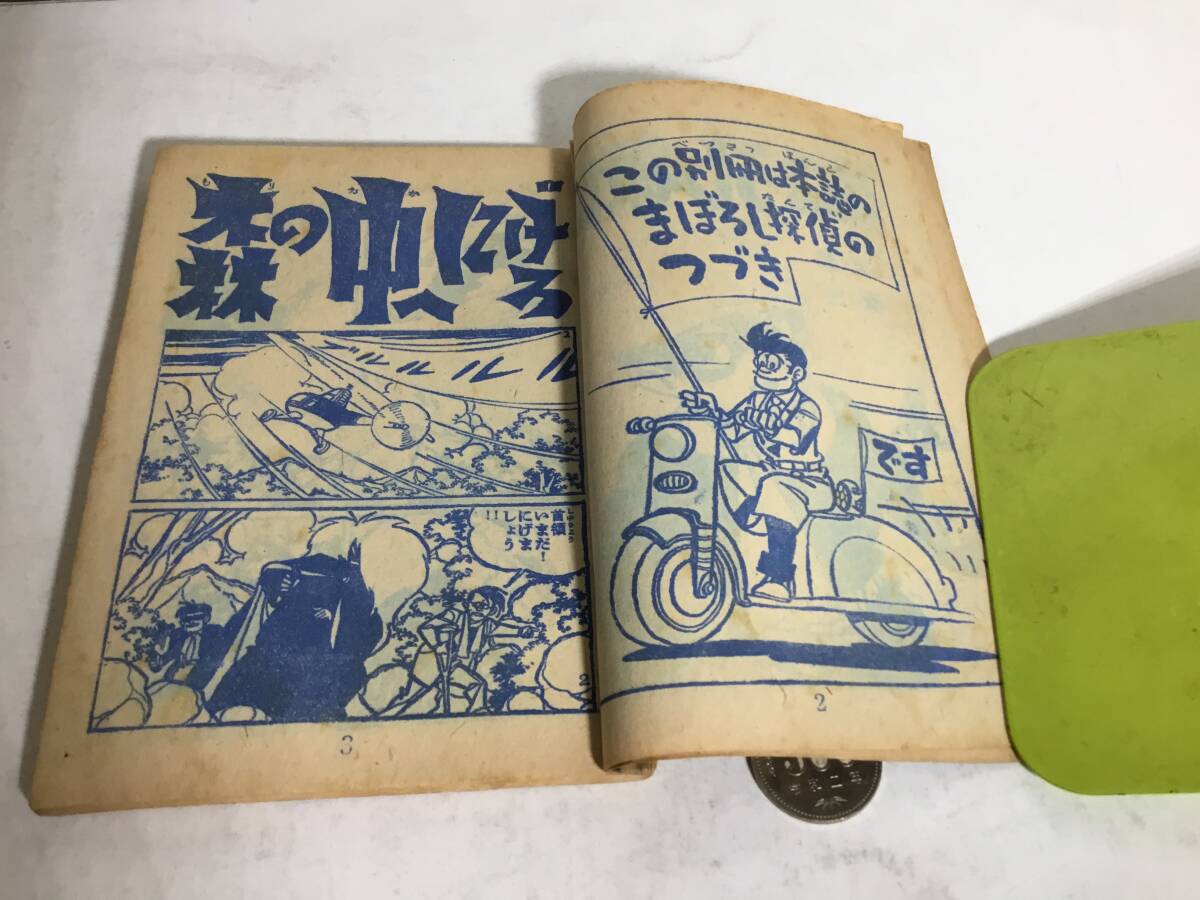 この別冊は本誌の
まぼろし探偵の
つづき
です
2
森の中
首領
いまだ!
にげま
しょう
!!
2
3